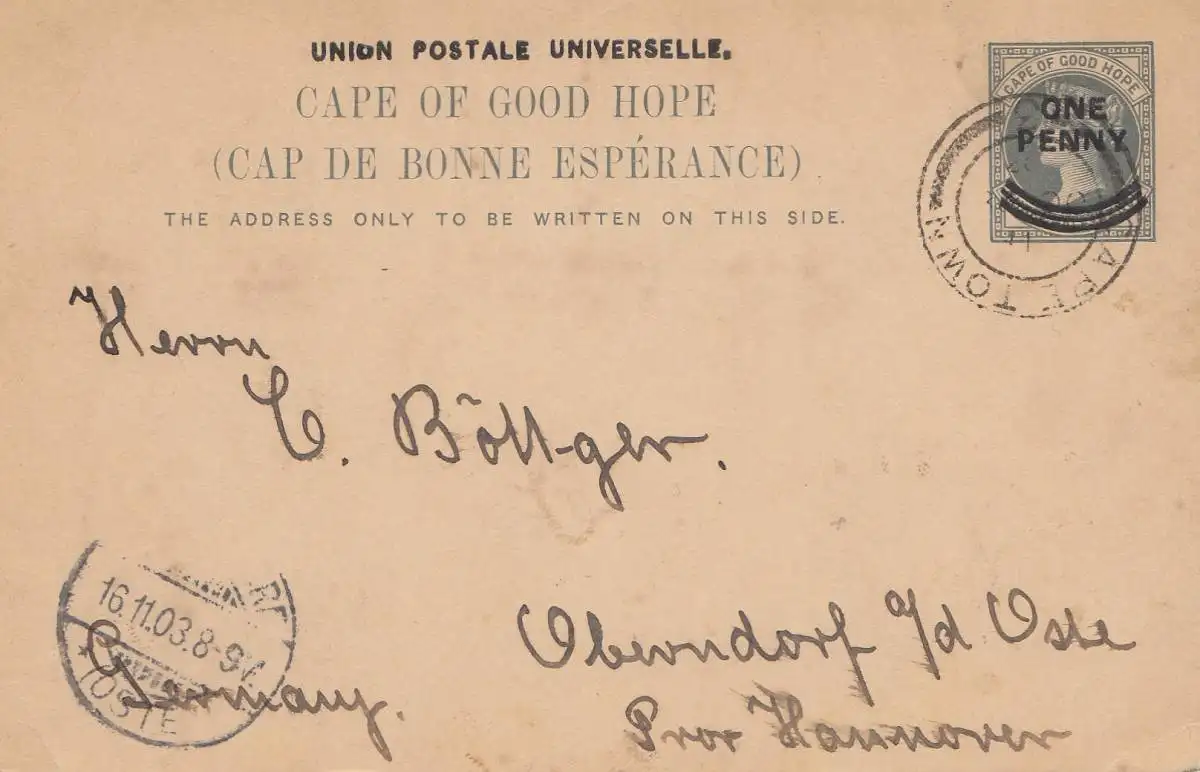 UNION POSTALE UNIVERSELLE.
CAPE OF GOOD HOPE
(CAP DE BONNE ESPÉRANCE)
THE ADDRESS ONLY TO BE WRITTEN ON THIS SIDE.
CAPE OF GOOD HOPE
ONE
PENNY.
CAPE TOWN
Herrn
C. Böttger.
Oberndorf a/d Oste
Prov Hannover
Germany.
16.11.03.8-9V.
*(OSTE